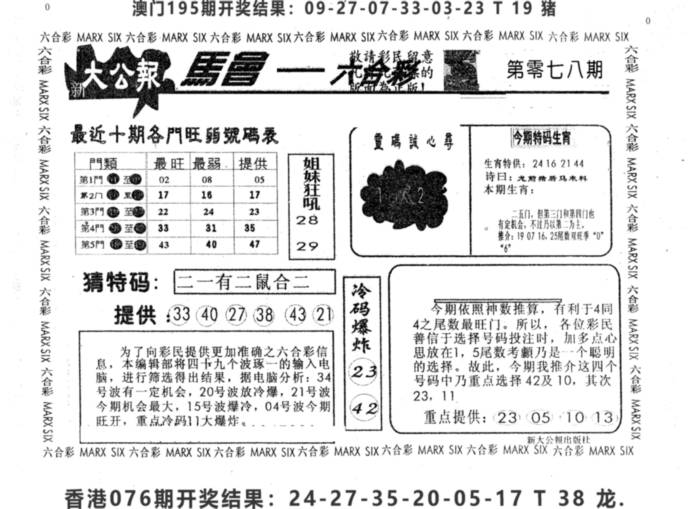 澳门195期开奖结果：09-27-07-33-03-23 T 19 猪
六合彩 MARX SIX 六合彩 MARX SIX 六合彩 MARX SIX 六合彩 MARX SIX 六合彩 MARX SIX 六合彩 MARX SIX
新大公報
馬會一六合彩
敬請彩民留意
第零七八期
最近十期各門旺弱號碼表
門類 最旺 最弱 提供
第1門 02 08 05
第2门 17 16 17
第3門 22 24 23
第4門 33 31 35
第5門 43 40 47
姐妹狂吼
28
29
靈碼誠心尋
今期特码生肖
生肖特供：24 16 21 44
诗曰：
本期生肖：
二五门，但第三门和第四门也
有定机会，不过乃以第二为主。
推介：19 07 16、25尾数双旺季“0”
“6”
猜特码：二一有二鼠合二
提供：33 40 27 38 43 21
为了向彩民提供更加准确之六合彩信
息，本编辑部将四十九个波琢一的输入电
脑，进行筛选得出结果，据电脑分析：34
号波有一定机会，20号波放冷爆，21号波
今期机会最大，15号波爆冷，04号波今期
旺开，重点冷码11大爆炸。
冷码爆炸
23
42
今期依照神数推算，有利于4同
4之尾数最旺门。所以，各位彩民
善信于选择号码投注时，加多点心
思放在1，5尾数考顧乃是一个聪明
的选择。故此，今期我推介这四个
号码中乃重点选择42及10，其次
23，11
重点提供：23 05 10 13
新大公報出版社
六合彩 MARX SIX 六合彩 MARX SIX 六合彩 MARX SIX 六合彩 MARX SIX 六合彩 MARX SIX 六合彩 MARX SIX
香港076期开奖结果：24-27-35-20-05-17 T 38 龙.